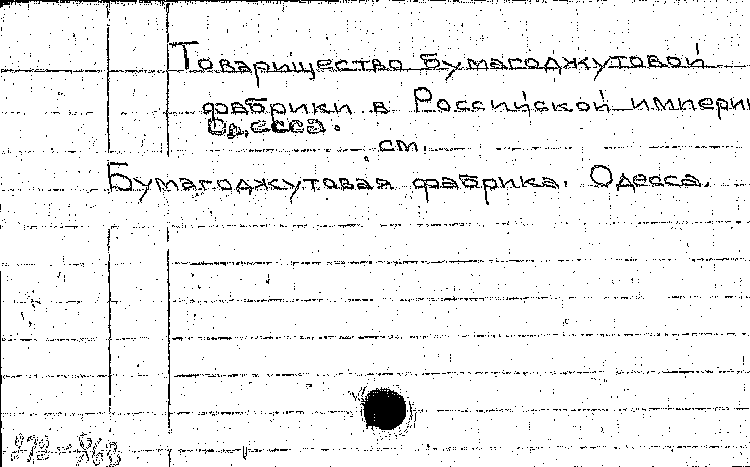 Товарищество бумагоджутовой
фабрики в Российской импери
Одесса.
см.
Бумагоджутовая фабрика. Одесса.